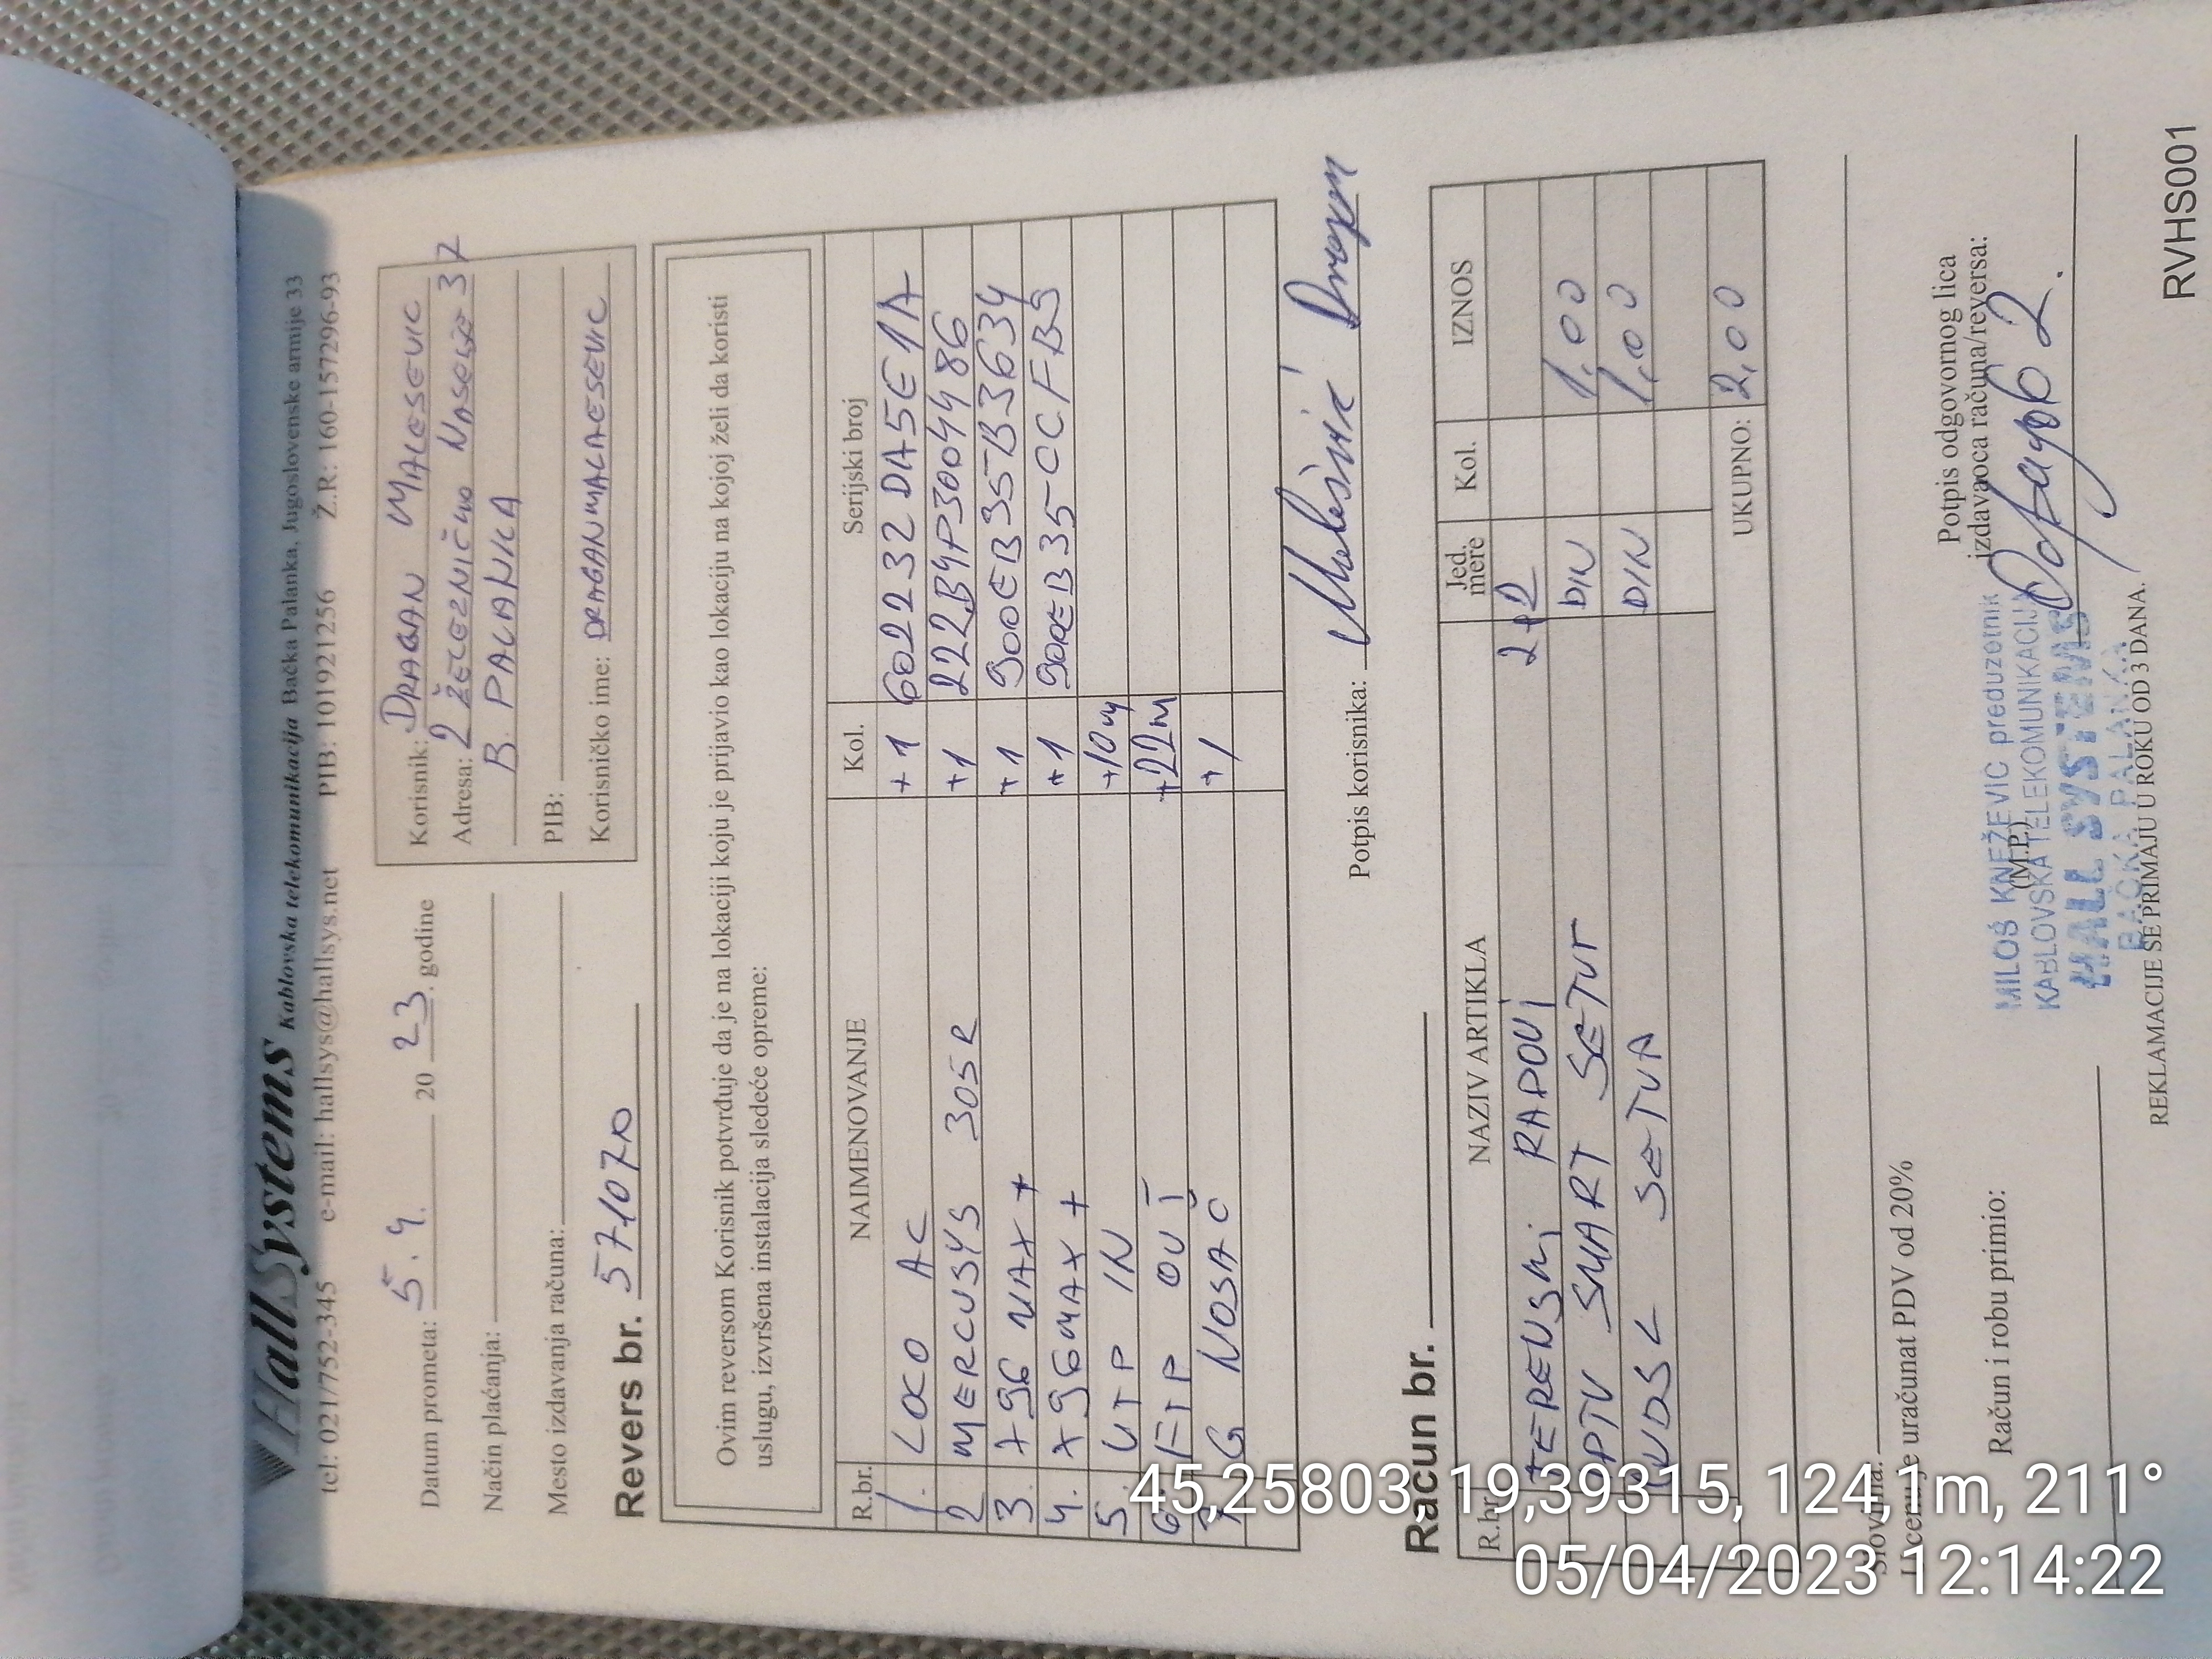 HallSystems Kablovska telekomunikacija Bačka Palanka, Jugoslovenske armije 33
tel: 021/752-345 e-mail: hallsys@hallsys.net PIB: 101921256 Ž.R: 160-157296-93
Datum prometa: 5.4. 20 23. godine
Način plaćanja:
Mesto izdavanja računa:
Revers br. 571070
Korisnik: DRAGAN MALESEVIC
Adresa: 2 ŽELEZNIČKO NASELJE 37
B. PALANKA
PIB:
Korisničko ime: DRAGANMALAESEVIC
Ovim reversom Korisnik potvrđuje da je na lokaciji koju je prijavio kao lokaciju na kojoj želi da koristi
uslugu, izvršena instalacija sledeće opreme:
R.br. NAIMENOVANJE Kol. Serijski broj
1. LOCO AC +1 602232DA5E1A
2 MERCUSYS 305R +1 222B4P3004486
3. X96 MAX+ +1 900EB35B3634
4. X96MAX+ +1 900EB35CCFB9
5. UTP IN +10m
6. FTP OUT +22m
7. G NOSAČ +1
Potpis korisnika: Malešević Dragan
Račun br.
R.br. NAZIV ARTIKLA Jed. mere Kol. IZNOS
TERENSKI RADOVI 2+2
IPTV SMART SETUP DIN 1,00
VDSL SETUP DIN 1,00
UKUPNO: 2,00
Slovima:
U cenu je uračunat PDV od 20%
Račun i robu primio:
(M.P.)
MILOŠ KNEŽEVIĆ preduzetnik
KABLOVSKA TELEKOMUNIKACIJA
HALL SYSTEMS
BAČKA PALANKA
Potpis odgovornog lica
izdavaoca računa/reversa:
REKLAMACIJE SE PRIMAJU U ROKU OD 3 DANA.
RVHS001
45,25803, 19,39315, 124,1m, 211°
05/04/2023 12:14:22